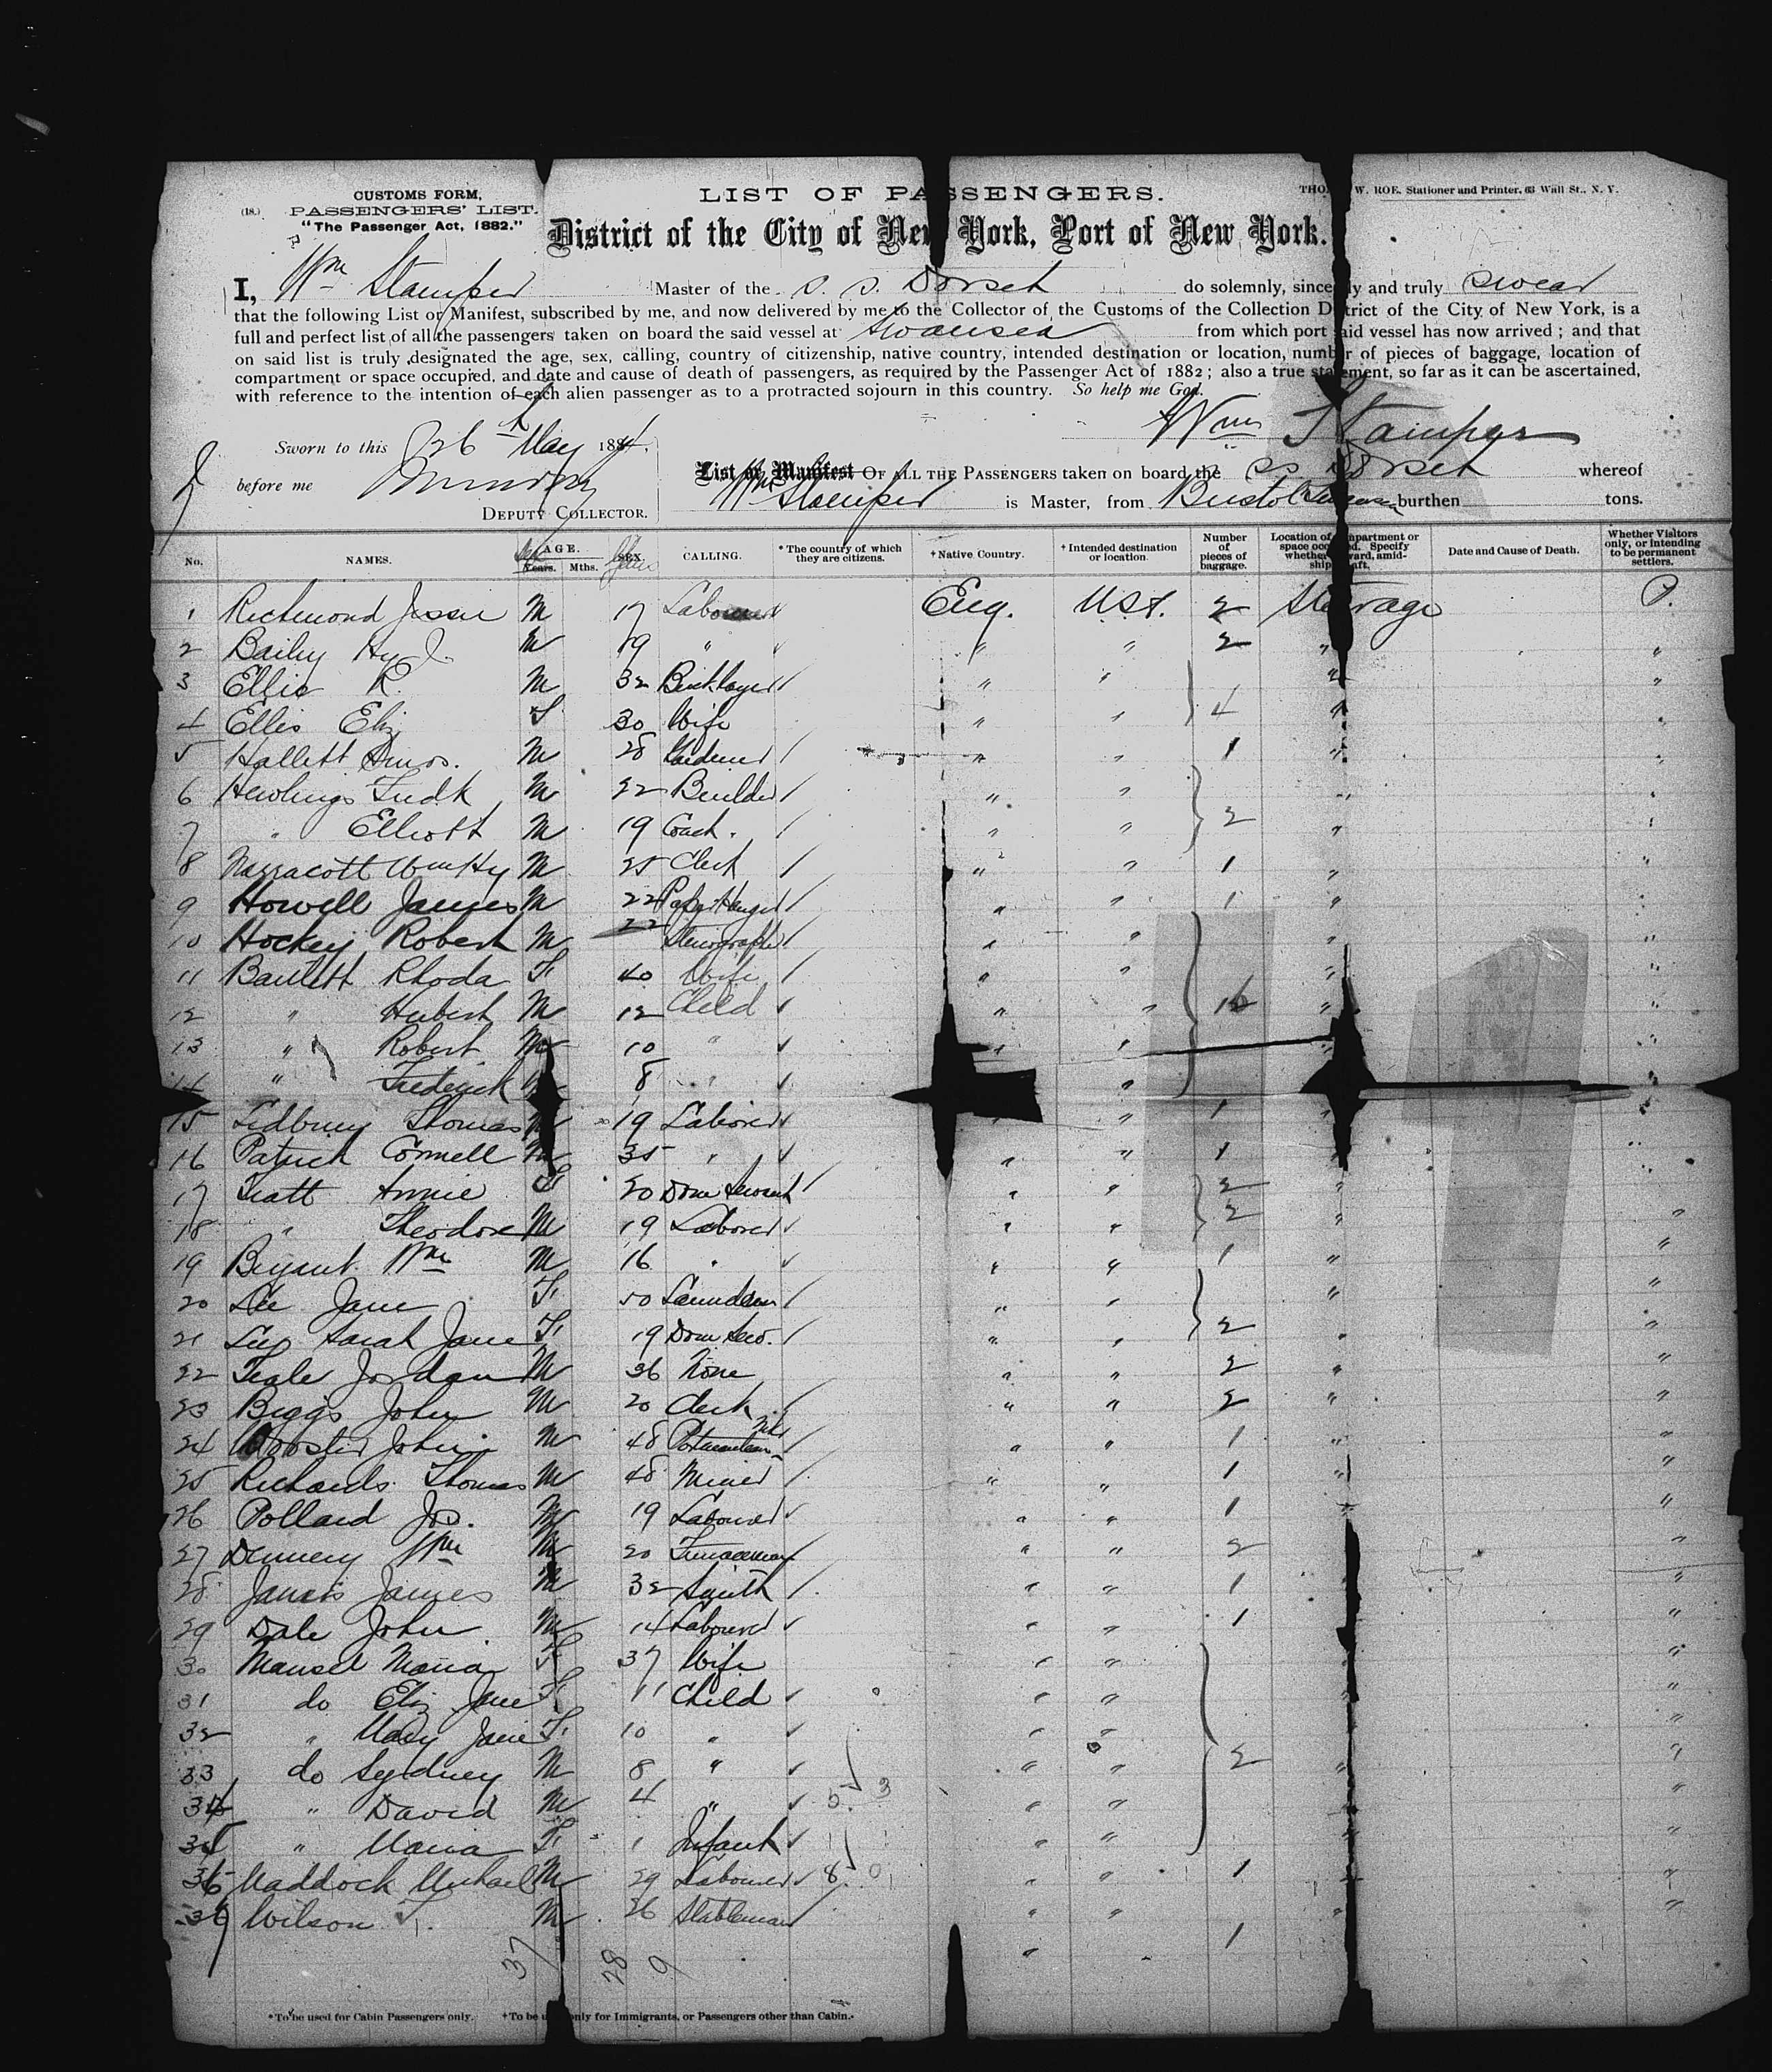 CUSTOMS FORM,
(18.) PASSENGERS' LIST.
"The Passenger Act, 1882."
LIST OF PASSENGERS.
THO W. ROE. Stationer and Printer, 63 Wall St., N. Y.
District of the City of New York, Port of New York.
I, Wm Stamper Master of the S. S. Dorset do solemnly, sincerely and truly swear
that the following List or Manifest, subscribed by me, and now delivered by me to the Collector of the Customs of the Collection District of the City of New York, is a
full and perfect list of all the passengers taken on board the said vessel at Swansea from which port said vessel has now arrived ; and that
on said list is truly designated the age, sex, calling, country of citizenship, native country, intended destination or location, number of pieces of baggage, location of
compartment or space occupied, and date and cause of death of passengers, as required by the Passenger Act of 1882 ; also a true statement, so far as it can be ascertained,
with reference to the intention of each alien passenger as to a protracted sojourn in this country. So help me God.
Wm Stamper
Sworn to this 26th May 1884.
before me
DEPUTY COLLECTOR.
List or Manifest OF ALL THE PASSENGERS taken on board the SS Dorset whereof
Wm Stamper is Master, from Bristol Swansea burthen tons.
No. NAMES. AGE. Years. Mths. SEX. CALLING. *The country of which they are citizens. †Native Country. †Intended destination or location. Number of pieces of baggage. Location of compartment or space occupied. Specify whether forward, amidships or aft. Date and Cause of Death. Whether Visitors only, or intending to be permanent settlers.
1 Richmond Jesse M 17 Labourer Eng. USA. 2 Steerage P.
2 Baily Hy J. M 19 " " " 2 " "
3 Ellis R. M 32 Bricklayer " " " "
4 Ellis Eliz F 30 Wife " " 4 " "
5 Hallett Amos. M 28 Gardener " " 1 " "
6 Hewlings Fredk M 22 Builder " " " "
7 " Elliott M 19 Coach. " " 2 " "
8 Narracott Wm Hy M 25 Clerk " " 1 " "
9 Howell James M 22 Paper Hanger " " 1 "
10 Hockey Robert M 22 Stenographer " " " "
11 Bartlett Rhoda F 40 Wife " " " "
12 " Hubert M 12 Child " " " "
13 " Robert M 10 " " " " "
14 " Frederick 8 " " "
15 Sidbury Thomas M 19 Laborer " " 1 " "
16 Patrick Connell M 35 " " " 1 " "
17 Annie F 20 Dom Servant " " 2 "
18 " Theodore M 19 Laborer " " 2 " "
19 Bryant Wm M 16 " " " 1 " "
20 Lee Jane F 50 " " " "
21 Lee Sarah Jane F 19 Dom Serv. " " 2 " "
22 Teale Jordan M 36 None " " 2 " "
23 Biggs John M 20 Clerk " " 2 " "
24 Wooster John M 48 " " 1 " "
25 Richards Thomas M 48 Miner " " 1 " "
26 Pollard Jos. M 19 Labourer " " 1 " "
27 Dennery Wm M 20 Furnaceman " " 2 "
28 James M 32 Smith " " 1 "
29 Dale John M 14 Labourer " " 1 "
30 Mansel Maria F 37 Wife " " "
31 do Eliz Jane F 11 Child " " "
32 " Mary Jane F 10 " " " "
33 do Sydney M 8 " " " 2 " "
34 " David M 4 " " " "
35 " Maria F 1 Infant " " "
36 Maddock Michael M 29 Labourer " " 1 " "
37 Wilson T. M 26 Stableman " " 1 " "
37 28 9
*To be used for Cabin Passengers only. †To be used only for Immigrants, or Passengers other than Cabin.